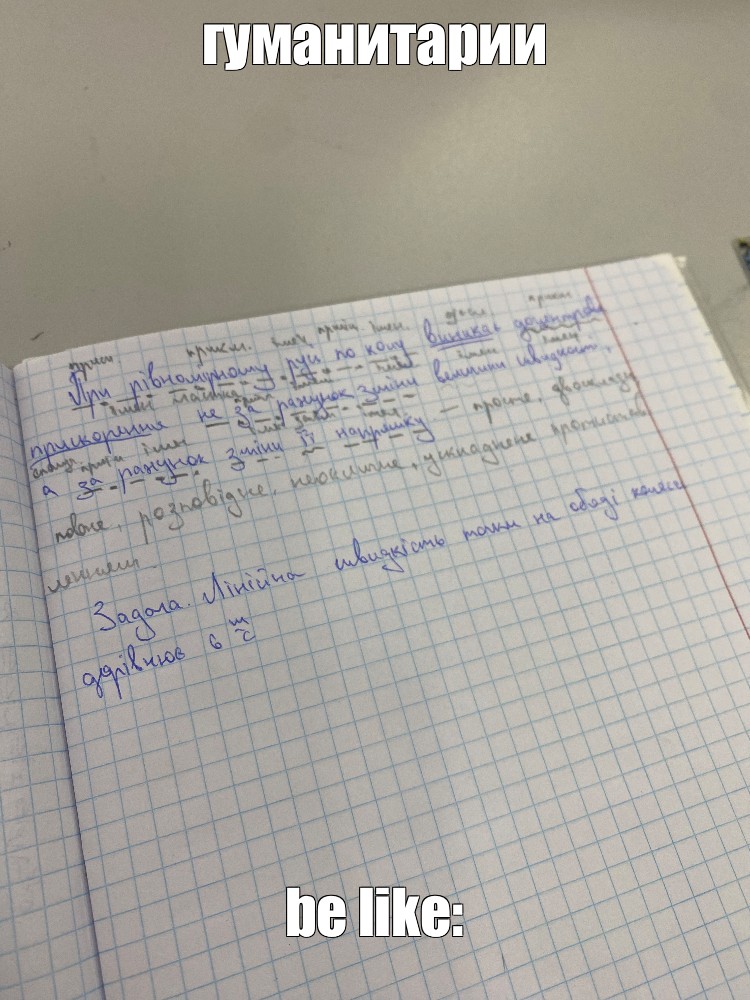 гуманитарии
прикм. імен. прийм. імен. дієсл. прикм.
При рівномірному русі по колу виникає доцентрове
прискорення не за рахунок зміни величини швидкості,
а за рахунок зміни її напрямку — просте, двоскладне,
повне, розповідне, неокличне, ускладнене
Задача. Лінійна швидкість точки на ободі колеса
дорівнює 6 м/с
be like: